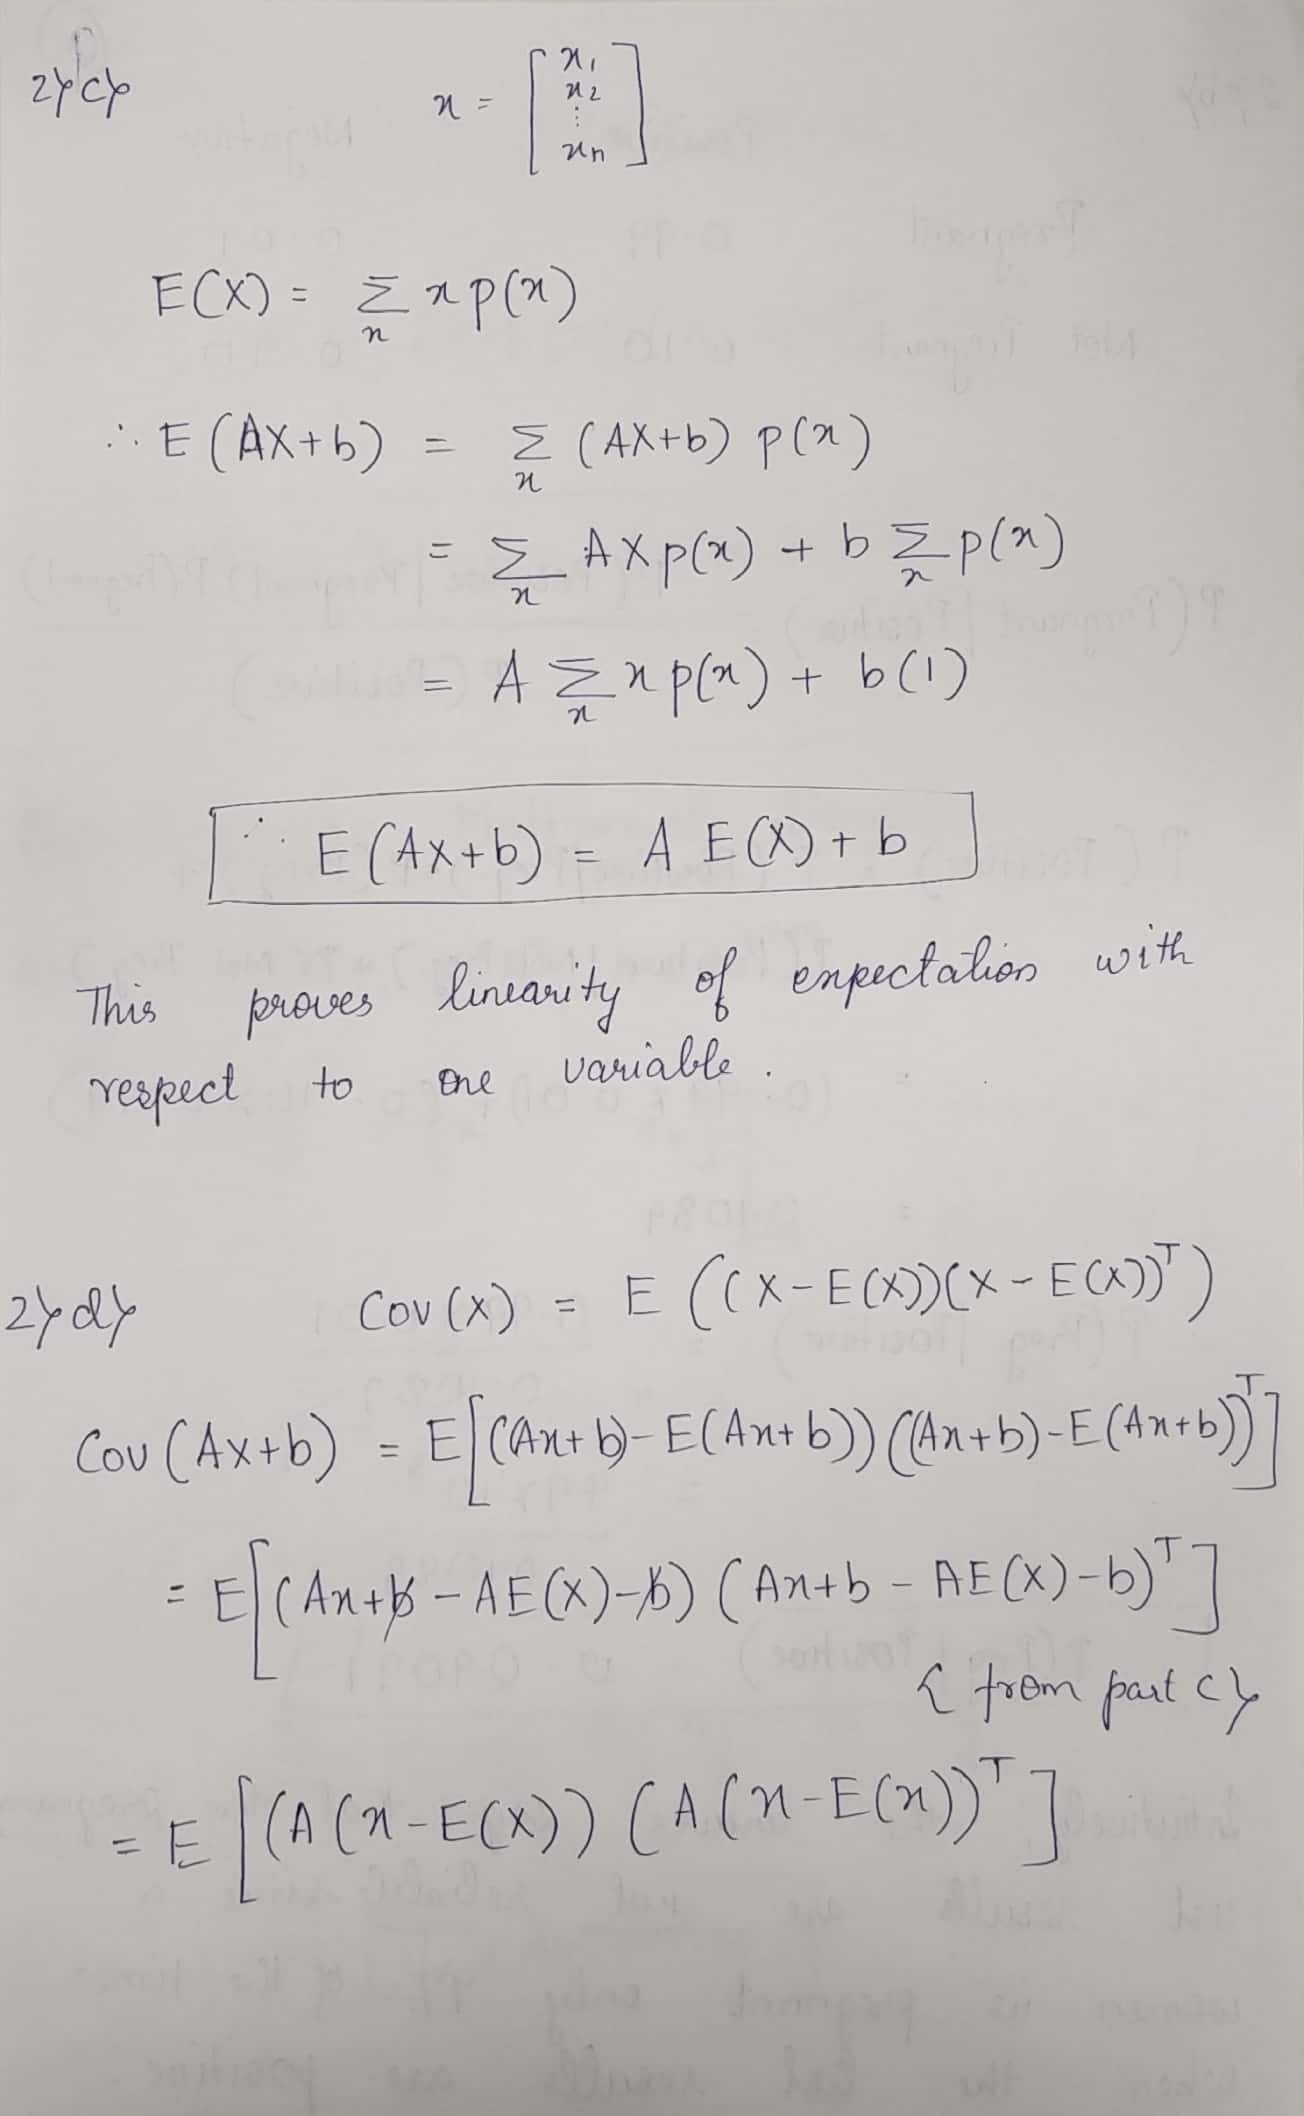 2) c) x = [ x1
x2
⋮
xn ]
E(X) = Σ_x x p(x)
∴ E (AX+b) = Σ_x (AX+b) p(x)
= Σ_x AX p(x) + b Σ_x p(x)
= A Σ_x x p(x) + b(1)
∴ E (AX+b) = A E(X) + b
This proves linearity of expectation with
respect to one variable.
2) d) Cov (X) = E ((X-E(X))(X-E(X))^T)
Cov (AX+b) = E[(Ax+b)-E(Ax+b))((Ax+b)-E(Ax+b))^T]
= E[(Ax+b - AE(X)-b) (Ax+b - AE(X)-b)^T]
{ from part c}
= E [(A(x-E(X)) (A(x-E(x))^T]